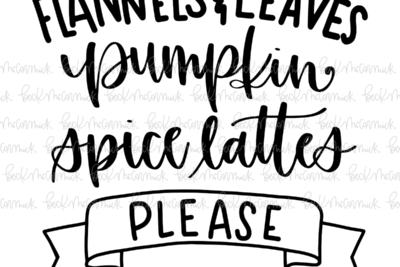 FLANNELS & LEAVES
pumpkin
spice lattes
PLEASE